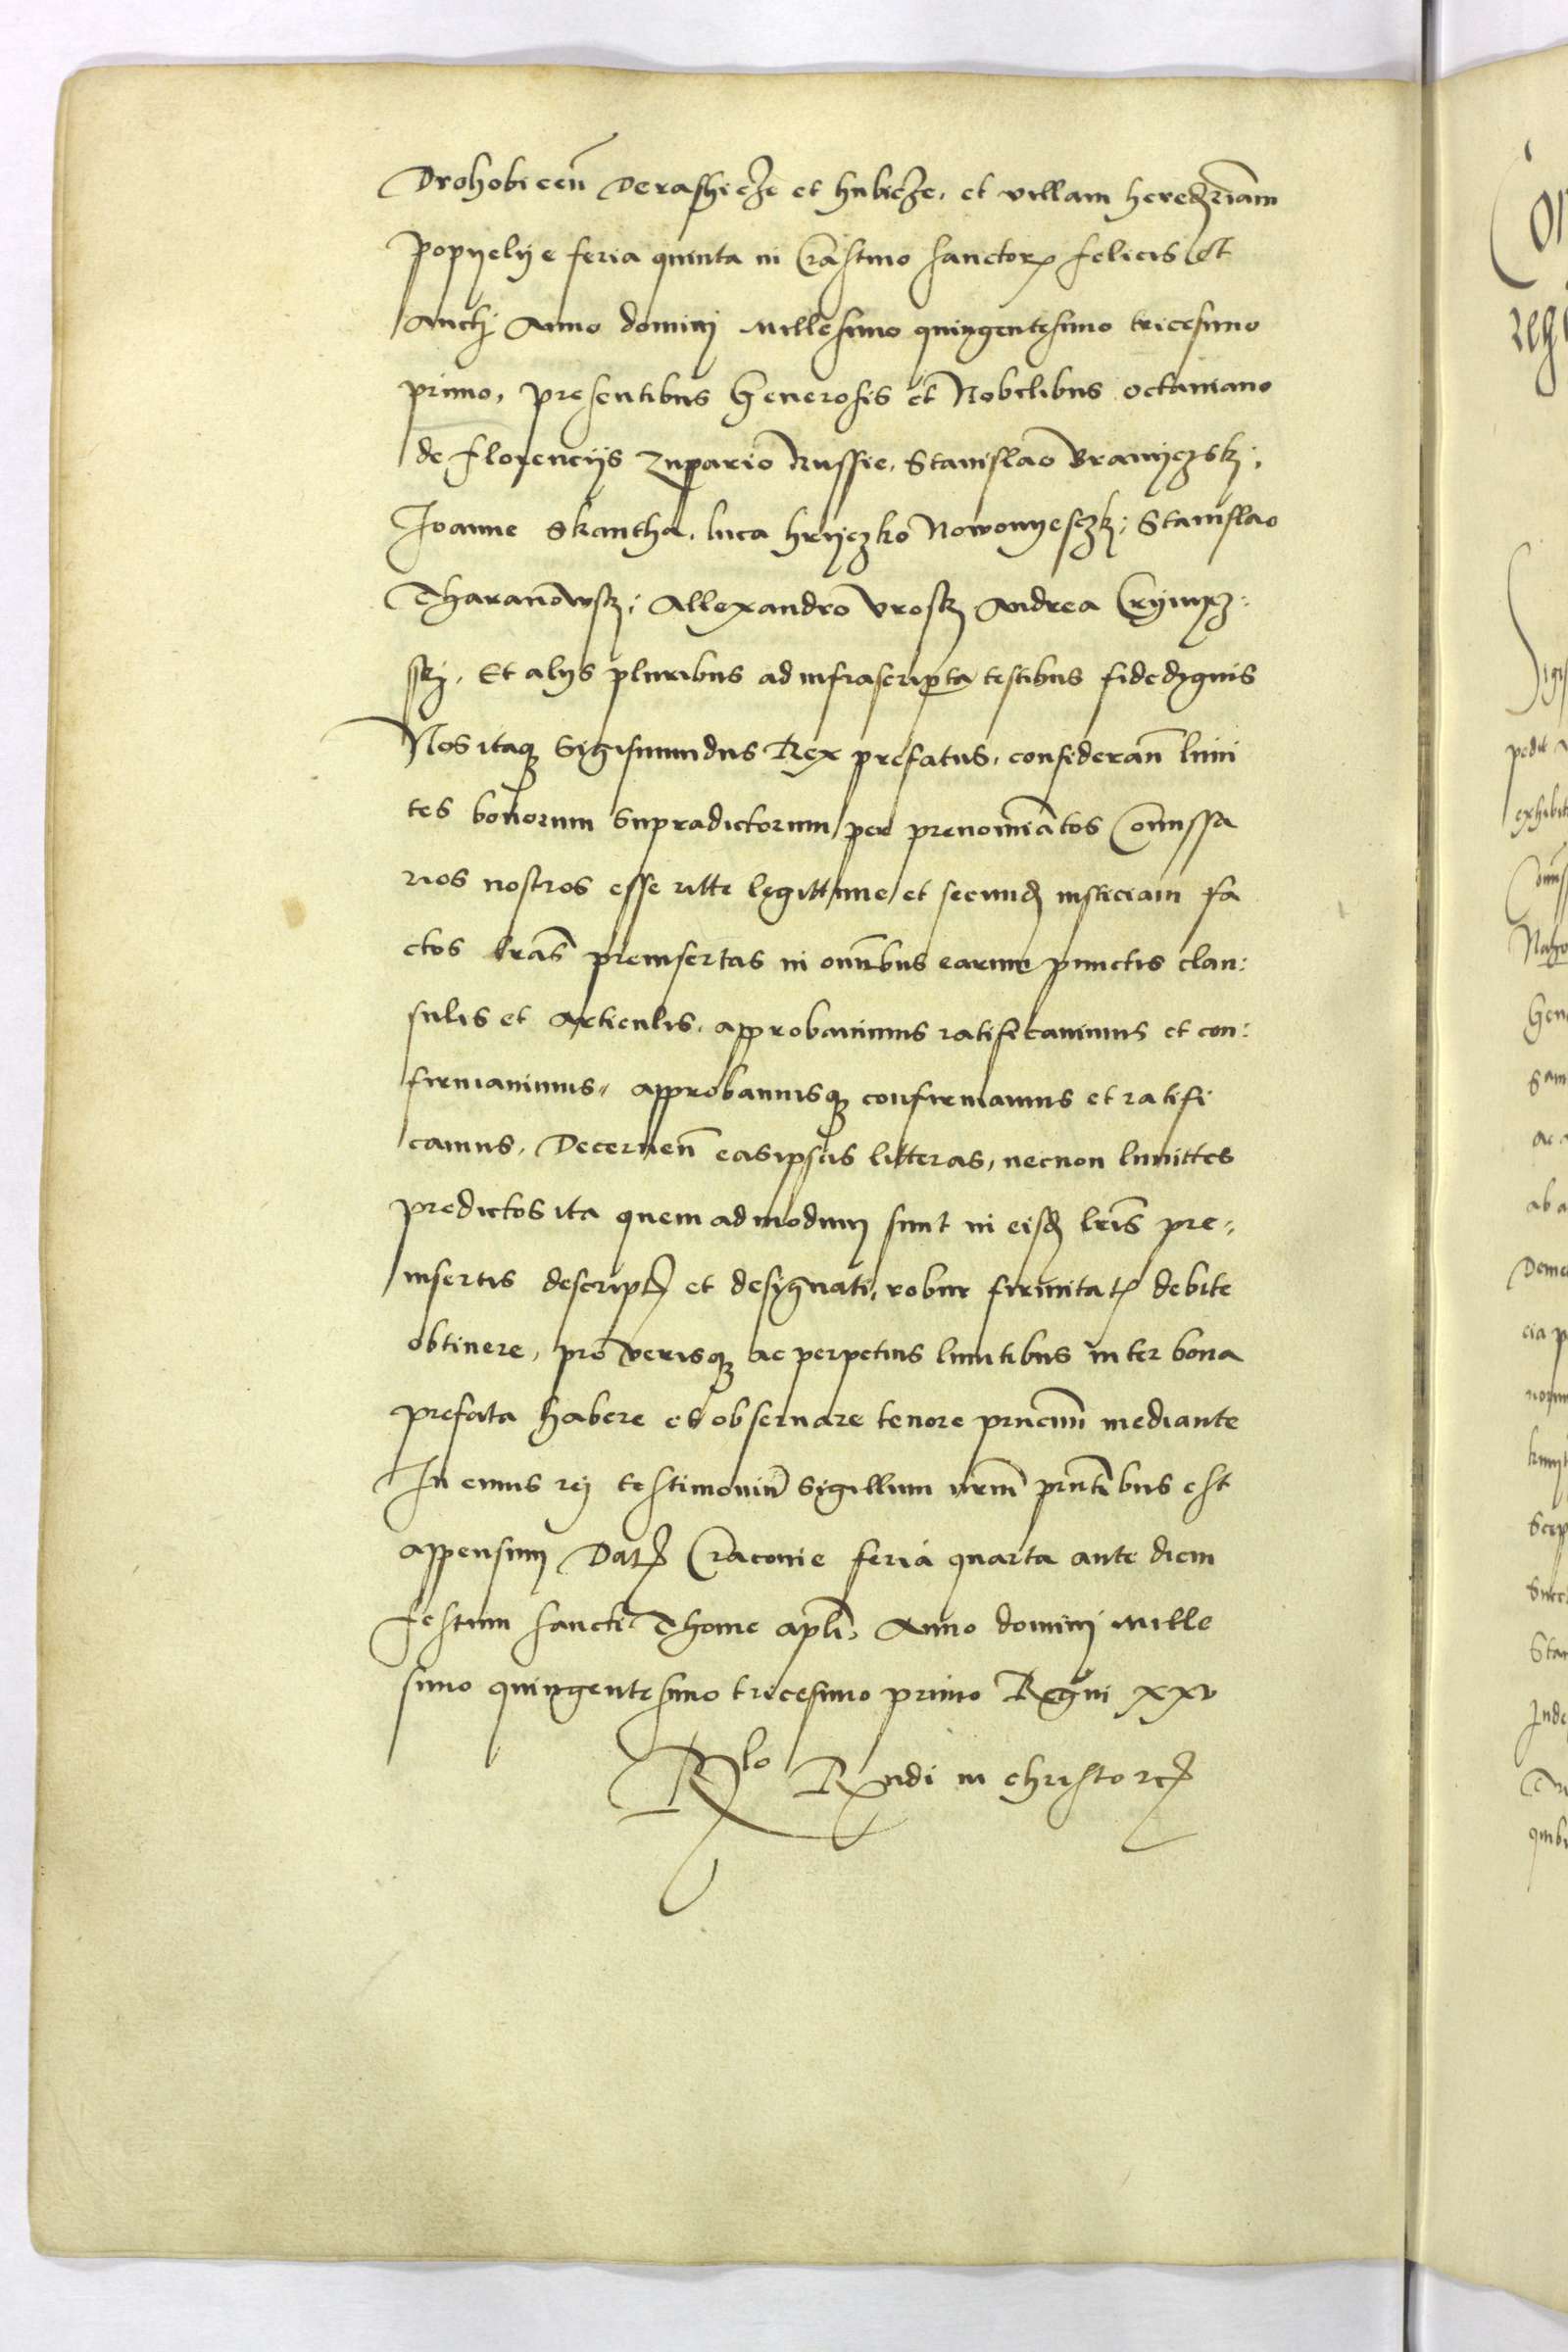 Drohobiceñ Deraschicze et hubicze, et villam heredz̃riam
Popyelye feria quinta in Crastino sanctorꝝ felicis Et
Aucti Anno dominj Millesimo quingentesimo tricesimo
primo, presentibus Generosis et Nobilibus Octauiano
de florencijs zuppario Russie, Stanislao Branyczskj,
Joanne Skantha, luca hryczko Nowomyesczkj, Stanislao
Tharanowskj, Allexandro Vroskj Andrea Crympz:
skj, Et alijs pluribus ad infrascripta testibus fidedignis
Nos itaqꝫ Sigismundus Rex prefatus, considerañ limi
tes bonorum Supradictorum per prenomiãtos Com̃issa
rios nostros esse ritte legittime et secundꝫ iusticiam fa
ctos lrãs preinsertas in om̃ibus earum punctis clau:
sulis et Articulis, approbauimus ratificauimus et con:
firmauimus, approbamusqꝫ confirmamus et ratifi
camus, Decerneñ easipsas litteras, necnon limittes
predictos ita quemadmodum sunt in eisdꝫ lrĩs pre:
insertis descriptꝭ et designati, robur firmitatꝭ debite
obtinere, pro verisqꝫ ac perpetuis limitibus inter bona
prefata habere et obseruare tenore pnciũm mediante
In cuius rej testimoniũ Sigillum nrm̃ pñtibus est
appensum Datꝭ Cracouie feria quarta ante diem
festum sancti Thome apli, Anno dominj mille
simo quingentesimo tricesimo primo Regni xxv
Rlo Rndi in christo rcꝭ